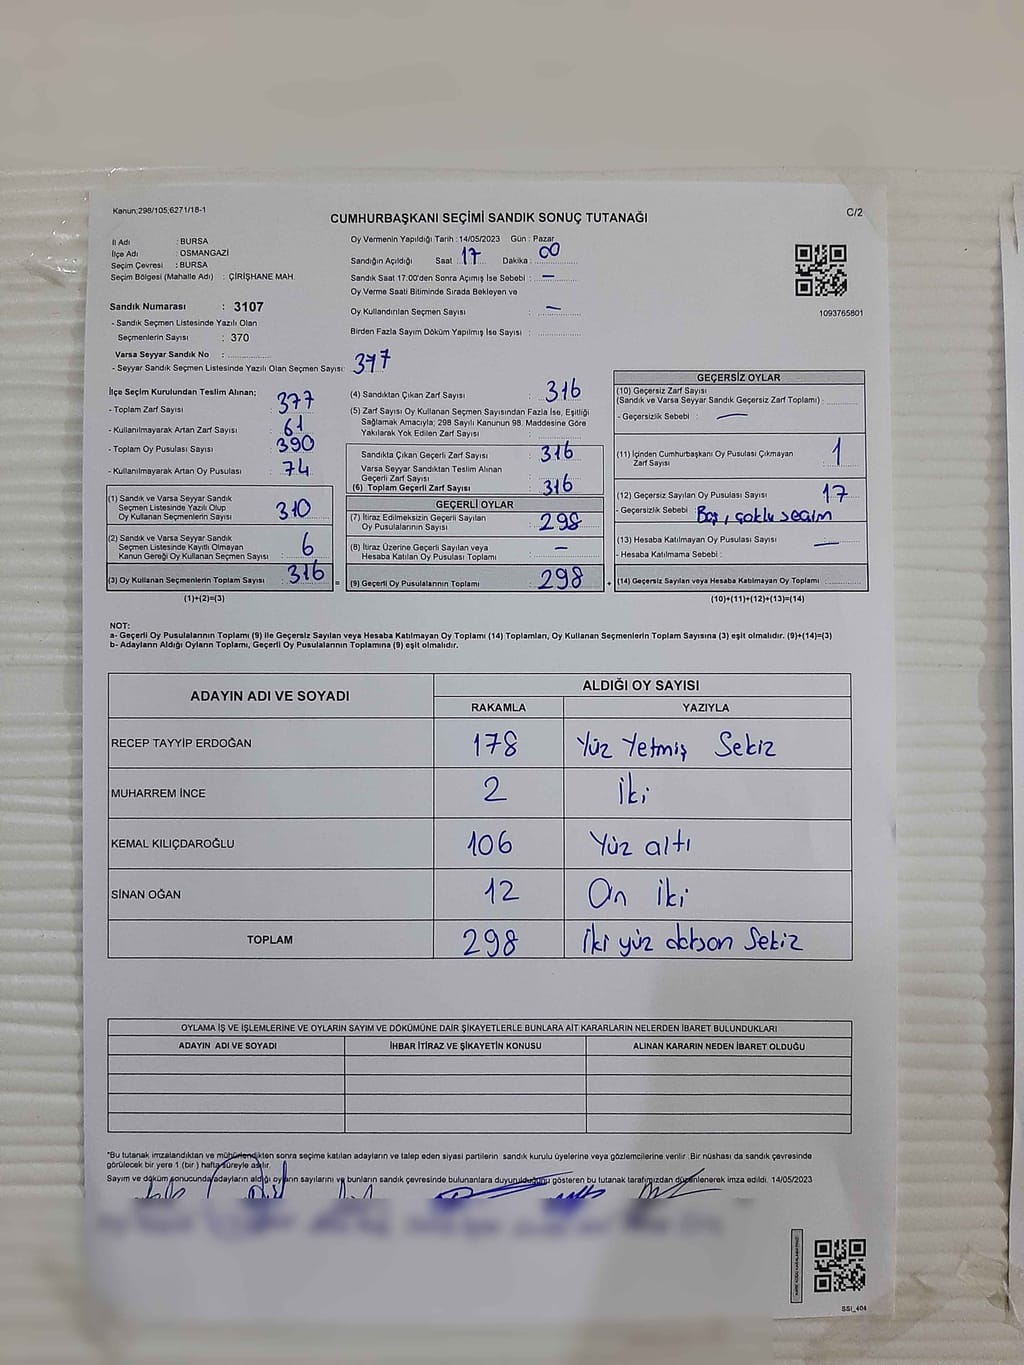 Kanun:298/105;6271/18-1
CUMHURBAŞKANI SEÇİMİ SANDIK SONUÇ TUTANAĞI
C/2
İl Adı : BURSA
İlçe Adı : OSMANGAZİ
Seçim Çevresi : BURSA
Seçim Bölgesi (Mahalle Adı) : ÇİRİŞHANE MAH.
Oy Vermenin Yapıldığı Tarih : 14/05/2023 Gün : Pazar
Sandığın Açıldığı Saat : 17 Dakika : 00
Sandık Saat 17:00'den Sonra Açımış İse Sebebi : —
Oy Verme Saati Bitiminde Sırada Bekleyen ve
Oy Kullandırılan Seçmen Sayısı : —
Birden Fazla Sayım Döküm Yapılmış İse Sayısı :
1093765801
Sandık Numarası : 3107
- Sandık Seçmen Listesinde Yazılı Olan
Seçmenlerin Sayısı : 370
Varsa Seyyar Sandık No :
- Seyyar Sandık Seçmen Listesinde Yazılı Olan Seçmen Sayısı: 377
İlçe Seçim Kurulundan Teslim Alınan;
- Toplam Zarf Sayısı : 377
- Kullanılmayarak Artan Zarf Sayısı : 61
- Toplam Oy Pusulası Sayısı : 390
- Kullanılmayarak Artan Oy Pusulası : 74
(1) Sandık ve Varsa Seyyar Sandık
Seçmen Listesinde Yazılı Olup
Oy Kullanan Seçmenlerin Sayısı : 310
(2) Sandık ve Varsa Seyyar Sandık
Seçmen Listesinde Kayıtlı Olmayan
Kanun Gereği Oy Kullanan Seçmen Sayısı : 6
(3) Oy Kullanan Seçmenlerin Toplam Sayısı : 316
(1)+(2)=(3)
(4) Sandıktan Çıkan Zarf Sayısı : 316
(5) Zarf Sayısı Oy Kullanan Seçmen Sayısından Fazla İse, Eşitliği
Sağlamak Amacıyla; 298 Sayılı Kanunun 98. Maddesine Göre
Yakılarak Yok Edilen Zarf Sayısı :
Sandıkta Çıkan Geçerli Zarf Sayısı : 316
Varsa Seyyar Sandıktan Teslim Alınan
Geçerli Zarf Sayısı :
(6) Toplam Geçerli Zarf Sayısı : 316
GEÇERLİ OYLAR
(7) İtiraz Edilmeksizin Geçerli Sayılan
Oy Pusulalarının Sayısı : 298
(8) İtiraz Üzerine Geçerli Sayılan veya
Hesaba Katılan Oy Pusulası Toplamı : —
= (9) Geçerli Oy Pusulalarının Toplamı : 298
GEÇERSİZ OYLAR
(10) Geçersiz Zarf Sayısı
(Sandık ve Varsa Seyyar Sandık Geçersiz Zarf Toplamı) :
- Geçersizlik Sebebi : —
(11) İçinden Cumhurbaşkanı Oy Pusulası Çıkmayan
Zarf Sayısı : 1
(12) Geçersiz Sayılan Oy Pusulası Sayısı : 17
- Geçersizlik Sebebi : Boş, çoklu seçim
(13) Hesaba Katılmayan Oy Pusulası Sayısı : —
- Hesaba Katılmama Sebebi :
+ (14) Geçersiz Sayılan veya Hesaba Katılmayan Oy Toplamı :
(10)+(11)+(12)+(13)=(14)
NOT:
a- Geçerli Oy Pusulalarının Toplamı (9) ile Geçersiz Sayılan veya Hesaba Katılmayan Oy Toplamı (14) Toplamları, Oy Kullanan Seçmenlerin Toplam Sayısına (3) eşit olmalıdır. (9)+(14)=(3)
b- Adayların Aldığı Oyların Toplamı, Geçerli Oy Pusulalarının Toplamına (9) eşit olmalıdır.
ADAYIN ADI VE SOYADI
ALDIĞI OY SAYISI
RAKAMLA YAZIYLA
RECEP TAYYİP ERDOĞAN 178 Yüz Yetmiş Sekiz
MUHARREM İNCE 2 İki
KEMAL KILIÇDAROĞLU 106 Yüz altı
SİNAN OĞAN 12 On İki
TOPLAM 298 İki yüz doksan Sekiz
OYLAMA İŞ VE İŞLEMLERİNE VE OYLARIN SAYIM VE DÖKÜMÜNE DAİR ŞİKAYETLERLE BUNLARA AİT KARARLARIN NELERDEN İBARET BULUNDUKLARI
ADAYIN ADI VE SOYADI İHBAR İTİRAZ VE ŞİKAYETİN KONUSU ALINAN KARARIN NEDEN İBARET OLDUĞU
*Bu tutanak imzalandıktan ve mühürlendikten sonra seçime katılan adayların ve talep eden siyasi partilerin sandık kurulu üyelerine veya gözlemcilerine verilir .Bir nüshası da sandık çevresinde
görülecek bir yere 1 (bir ) hafta süreyle asılır.
Sayım ve döküm sonucunda adayların aldığı oyların sayılarını ve bunların sandık çevresinde bulunanlara duyurulduğunu gösteren bu tutanak tarafımızdan düzenlenerek imza edildi. 14/05/2023
SSI_404